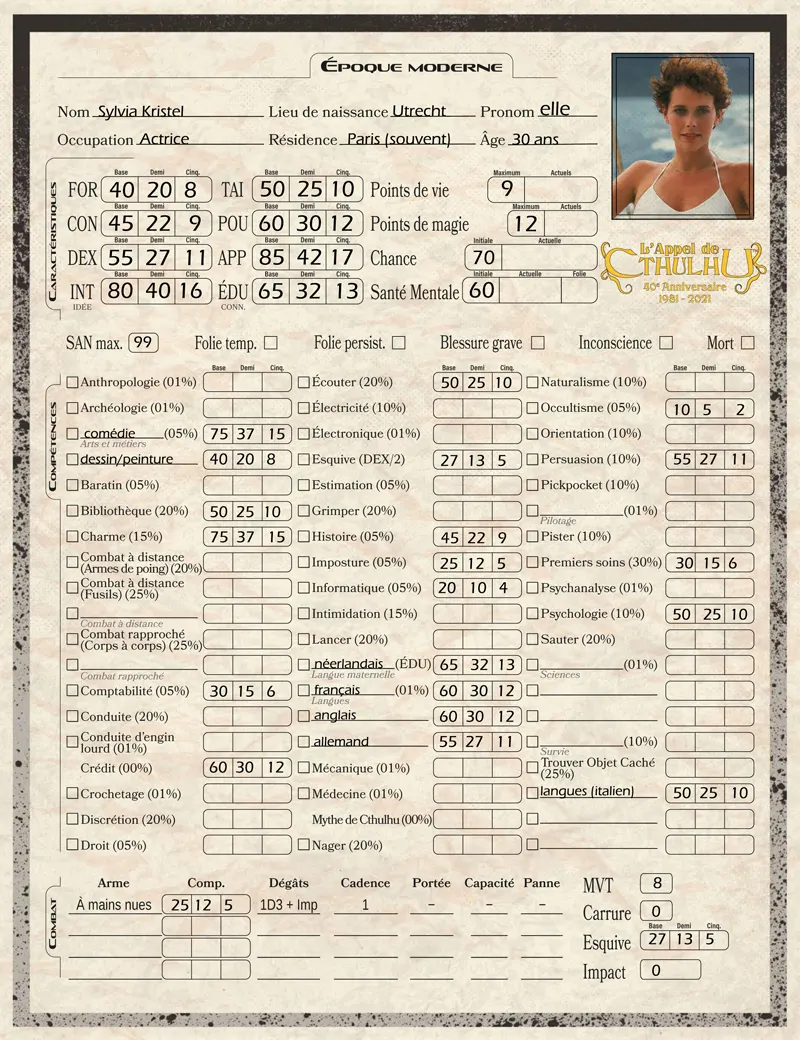 ÉPOQUE MODERNE
Nom Sylvia Kristel Lieu de naissance Utrecht Pronom elle
Occupation Actrice Résidence Paris (souvent) Âge 30 ans
CARACTÉRISTIQUES
Base Demi Cinq. Base Demi Cinq. Maximum Actuels
FOR 40 20 8 TAI 50 25 10 Points de vie 9
Base Demi Cinq. Base Demi Cinq. Maximum Actuels
CON 45 22 9 POU 60 30 12 Points de magie 12
Base Demi Cinq. Base Demi Cinq. Initiale Actuelle
DEX 55 27 11 APP 85 42 17 Chance 70
Base Demi Cinq. Base Demi Cinq. Initiale Actuelle Folie
INT 80 40 16 ÉDU 65 32 13 Santé Mentale 60
IDÉE CONN.
L'Appel de
CTHULHU
40e Anniversaire
1981 - 2021
SAN max. 99 Folie temp. Folie persist. Blessure grave Inconscience Mort
COMPÉTENCES
Base Demi Cinq. Base Demi Cinq. Base Demi Cinq.
Anthropologie (01%) Écouter (20%) 50 25 10 Naturalisme (10%)
Archéologie (01%) Électricité (10%) Occultisme (05%) 10 5 2
comédie (05%) 75 37 15 Électronique (01%) Orientation (10%)
Arts et métiers
dessin/peinture 40 20 8 Esquive (DEX/2) 27 13 5 Persuasion (10%) 55 27 11
Baratin (05%) Estimation (05%) Pickpocket (10%)
Bibliothèque (20%) 50 25 10 Grimper (20%) (01%)
Pilotage
Charme (15%) 75 37 15 Histoire (05%) 45 22 9 Pister (10%)
Combat à distance
(Armes de poing) (20%) Imposture (05%) 25 12 5 Premiers soins (30%) 30 15 6
Combat à distance
(Fusils) (25%) Informatique (05%) 20 10 4 Psychanalyse (01%)
Intimidation (15%) Psychologie (10%) 50 25 10
Combat à distance
Combat rapproché
(Corps à corps) (25%) Lancer (20%) Sauter (20%)
néerlandais (ÉDU) 65 32 13 (01%)
Combat rapproché Langue maternelle Sciences
Comptabilité (05%) 30 15 6 français (01%) 60 30 12
Langues
Conduite (20%) anglais 60 30 12
Conduite d'engin
lourd (01%) allemand 55 27 11 (10%)
Survie
Crédit (00%) 60 30 12 Mécanique (01%) Trouver Objet Caché
(25%)
Crochetage (01%) Médecine (01%) langues (italien) 50 25 10
Discrétion (20%) Mythe de Cthulhu (00%)
Droit (05%) Nager (20%)
COMBAT
Arme Comp. Dégâts Cadence Portée Capacité Panne MVT 8
À mains nues 25 12 5 1D3 + Imp 1 – – – Carrure 0
Base Demi Cinq.
Esquive 27 13 5
Impact 0